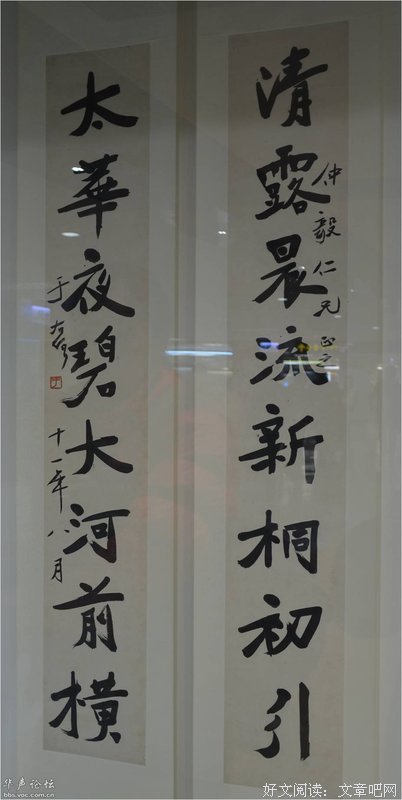 清露晨流新桐初引
仲毅仁兄正之
太華夜碧大河前橫
于右任
十一年八月
华声论坛
bbs.voc.com.cn
好文阅读：文章吧网